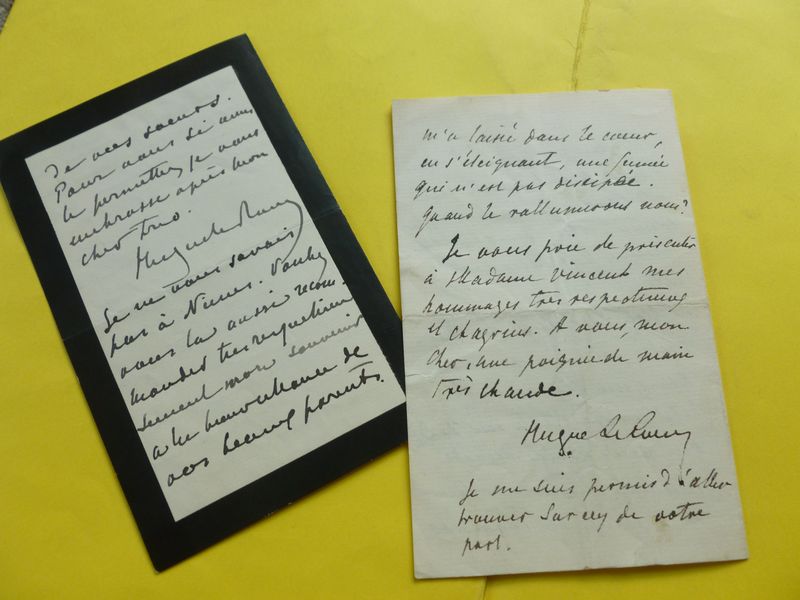 de vos sœurs.
Pour vous si vous
le permettez je vous
embrasse après mon
cher
Hugues Le Roux
Je ne vous savais
pas à Nîmes. Voulez
vous là aussi recom
mander très respectueu
sement mon souvenir
à la bienveillance de
vos beaux parents.
m'a laissé dans le cœur,
en s'éteignant, une fumée
qui n'est pas discipée.
Quand le rallumerons nous?
Je vous prie de présenter
à Madame Vincent mes
hommages très respectueux
et chagrins. A vous, mon
cher, une poignée de main
très chaude.
Hugues Le Roux
Je me suis permis d'aller
trouver Sarcey de votre
part.